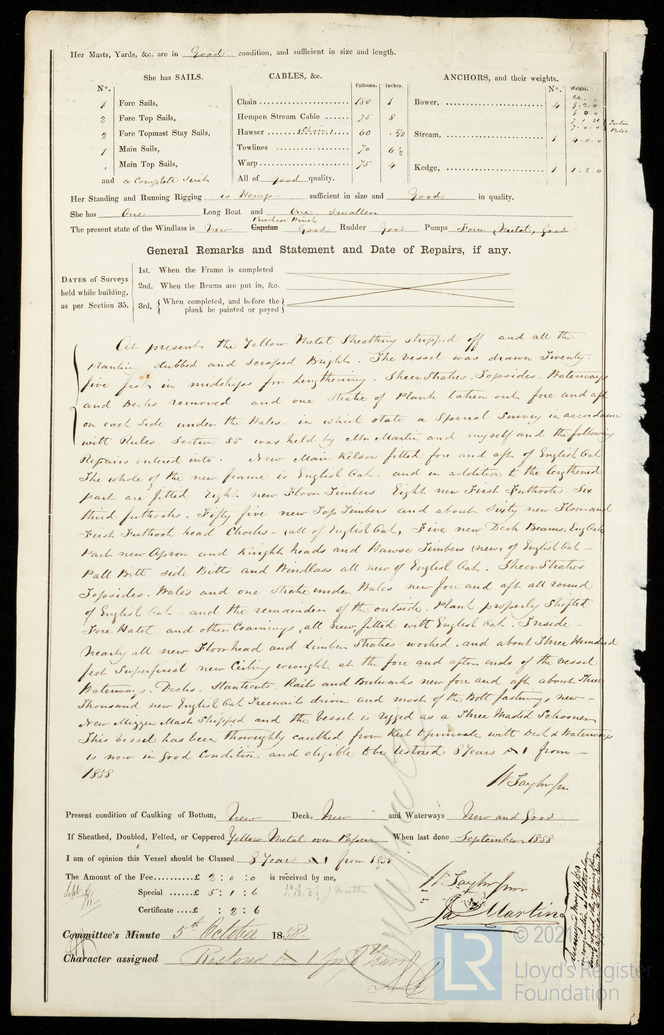 Her Masts, Yards, &c. are in Good condition, and sufficient in size and length.
She has SAILS.
N°.
1 Fore Sails,
2 Fore Top Sails,
2 Fore Topmast Stay Sails,
1 Main Sails,
1 Main Top Sails,
and a Complete Suit
CABLES, &c.
Fathoms. Inches.
Chain 180 1
Hempen Stream Cable 75 8
Hawser Chain 60
Towlines 70 6½
Warp 75 4
All of good quality.
ANCHORS, and their weights.
N°. Weight.
Bower, 4 9.2.0
Stream, 1 4.0.0
Kedge, 1 1.2.0
Her Standing and Running Rigging is Hemp sufficient in size and Good in quality.
She has One Long Boat and One smaller
The present state of the Windlass is New Capstan Good Rudder Good Pumps Four Metal, good
General Remarks and Statement and Date of Repairs, if any.
DATES of Surveys held while building, as per Section 35.
1st. When the Frame is completed
2nd. When the Beams are put in, &c.
3rd. When completed, and before the plank be painted or payed
At present the Yellow Metal Sheathing stripped off and all the
Plankin dubbed and scraped Bright. The Vessel was drawn Twenty-
five feet in midships for lengthening. Sheerstrakes, Topsides, Waterways
and Decks removed and one Strake of Plank taken out fore and aft
on each side under the Wales. in which state a Special Survey in accordance
with Rules. Section 55 was held by Mr Martin and myself and the following
Repairs entered into. New Main Kelson fitted fore and aft of English Oak
The whole of the new frame is English Oak. and in addition to the lengthened
part are fitted Eight new Floor Timbers. Eight new First Futtocks Six
third futtocks. Fifty five new Top Timbers and about Sixty new Floor and
First Futtock head Chocks - all of English Oak, Five new Deck Beams, Eng Oak
Part new Apron and Knight heads and Hawse Timbers (new) of English Oak -
Pall Bitt side Bitts and Windlass all new of English Oak. Sheer Strakes
Topsides. Wales and one Strake under Wales new fore and aft all round
of English Oak. and the remainder of the outside Plank properly Shifted
Fore Hatch and other Coamings, all new, fitted with English Oak. Inside -
Nearly all new Floorhead and Limber Strakes worked. and about Three Hundred
feet Superficial new Ceiling wrought at the fore and after ends of the vessel
Waterways. Decks. Stantients. Rails and Bulwarks new fore and aft about Three
Thousand new English Oak Treenails driven and most of the Bolt fastening new -
New Mizzen Mast Shipped and the Vessel is rigged as a Three Masted Schooner
This vessel has been thoroughly caulked from Keel to Gunwale with Deck & Waterways
is now in Good Condition and eligible to be restored 8 Years A 1 from -
1858
W Taylor Jnr
Present condition of Caulking of Bottom, New Deck, New and Waterways New and Good
If Sheathed, Doubled, Felted, or Coppered Yellow Metal over Paper When last done September 1858
I am of opinion this Vessel should be Classed 8 Years A 1 from 1858
The Amount of the Fee £ 2 : 0 : 0 is received by me,
Special £ 5 : 1 : 6
Certificate : 2 : 6
W Taylor Junr
Jas Martin
Committee's Minute 5th October 1858.
Character assigned Restored A 1 for 8 Years
© 2021
LR
Lloyd's Register
Foundation